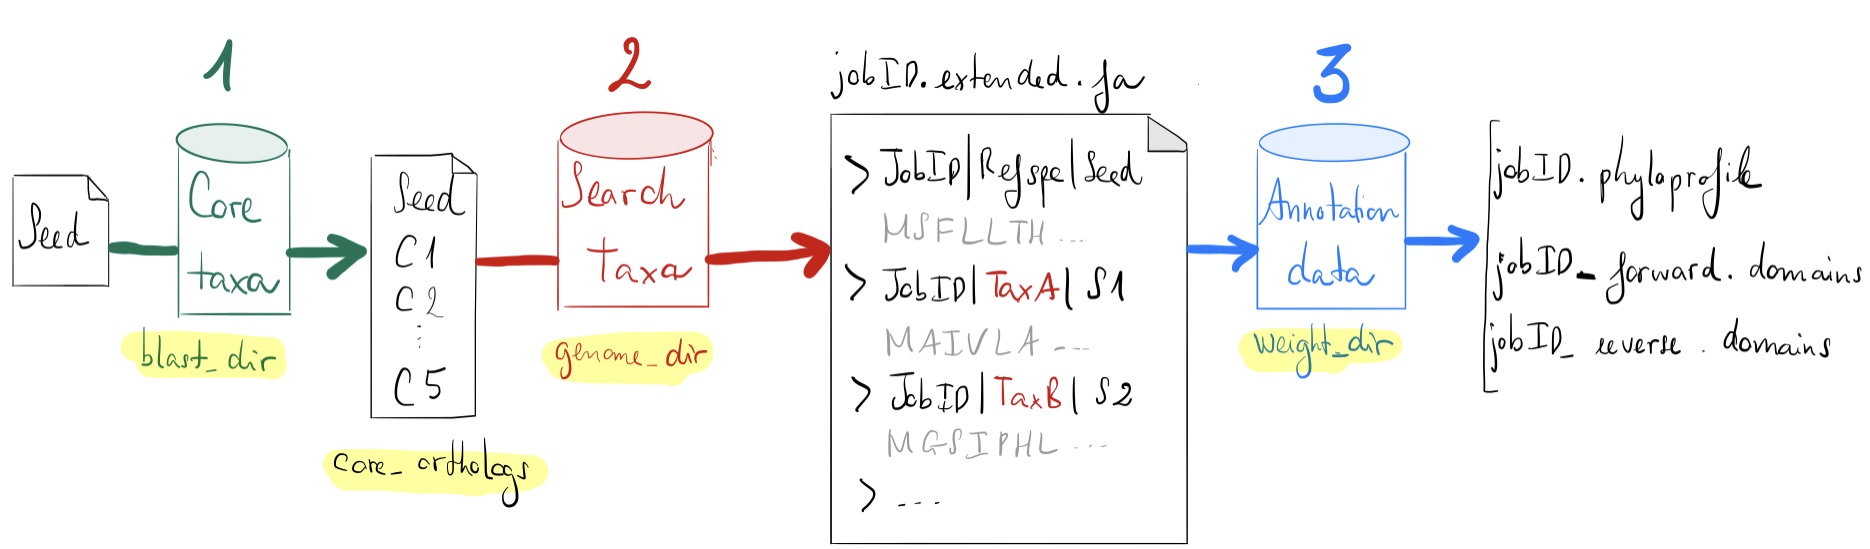 1
2
3
Seed
Core
taxa
blast_dir
Seed
C1
C2
⋮
C5
core_orthologs
Search
taxa
genome_dir
jobID.extended.fa
> JobID|Refspe|Seed
MSFLLTH ...
> JobID|TaxA|S1
MAIVLA ---
> JobID|TaxB|S2
MGSIPHL ...
> ---
Annotation
data
weight_dir
jobID.phyloprofile
jobID_forward.domains
jobID_reverse.domains